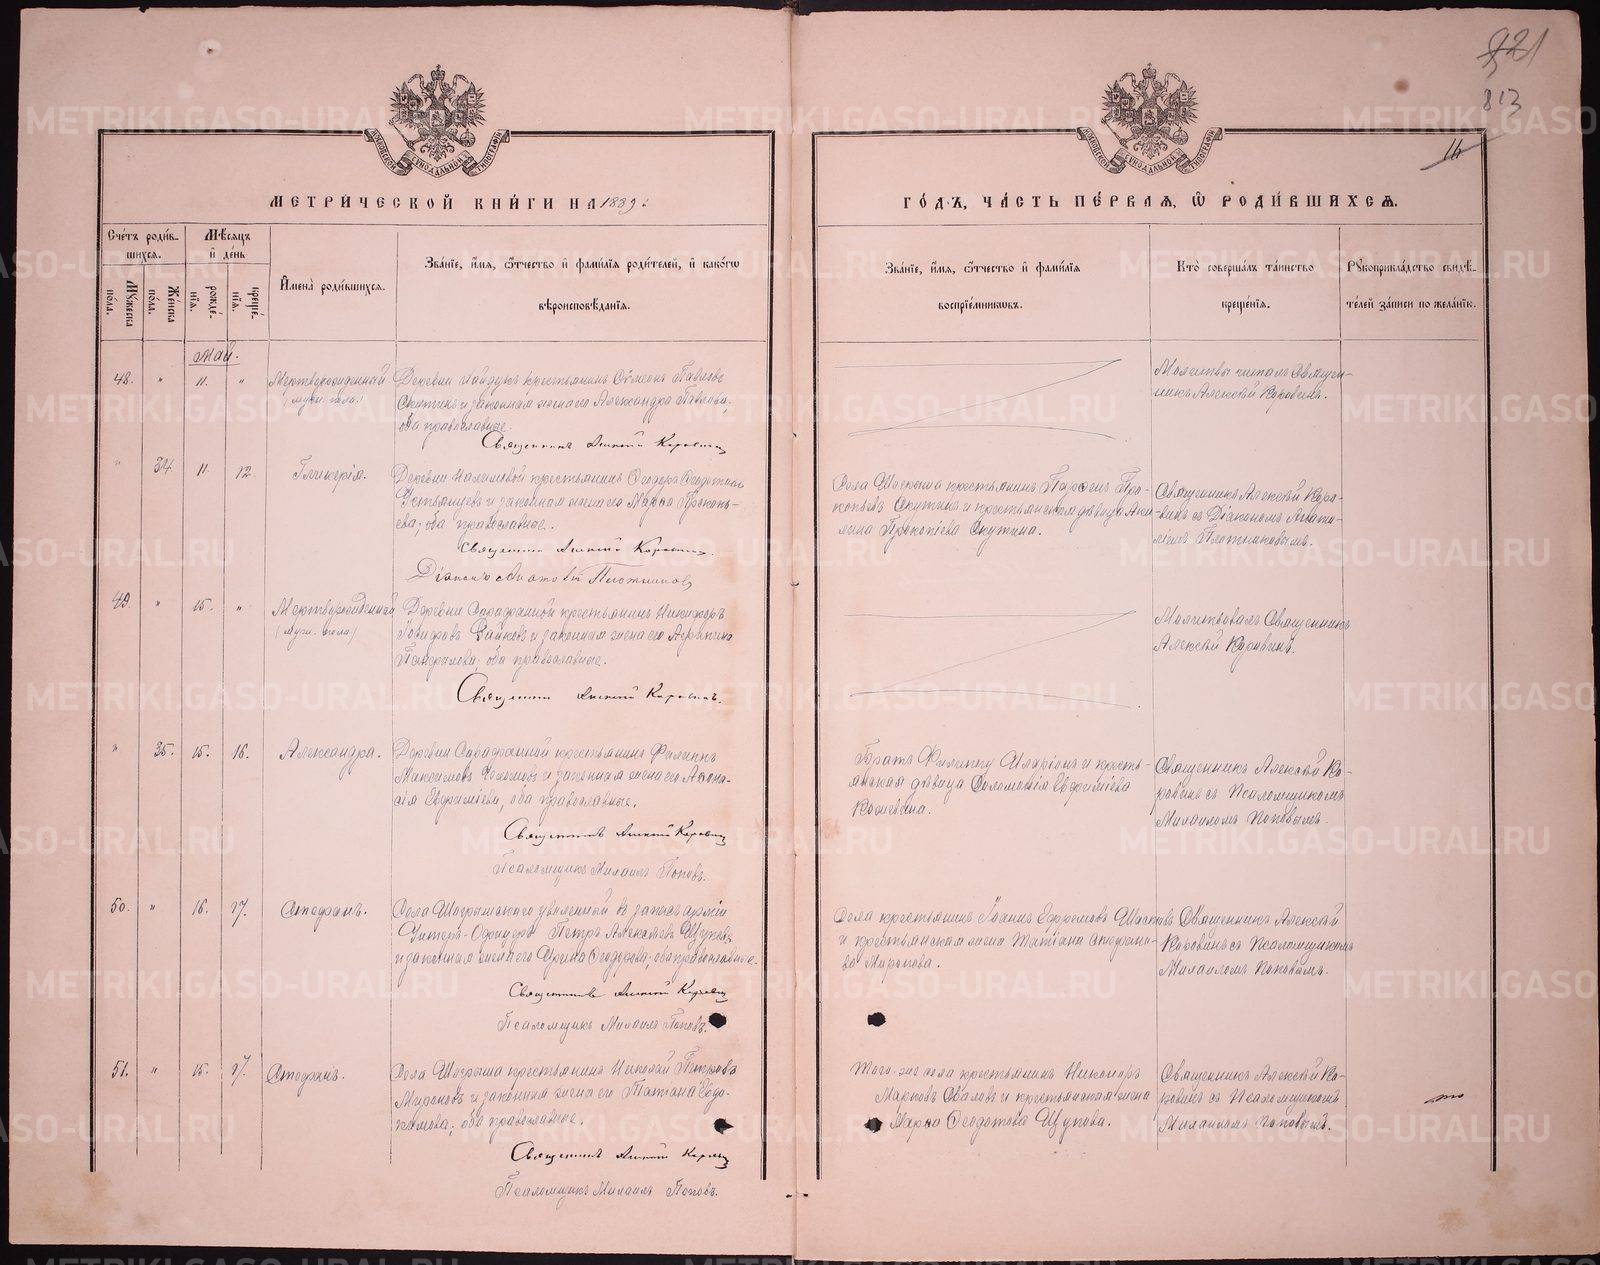 821
813
16
МЕТРИ́ЧЕСКОЙ КНИ́ГИ НА 1889 г.
ГО́ДЪ, ЧА́СТЬ ПЕ́РВАЯ, Ѽ РОДИ́ВШИХСЯ.
МОСКОВСКОЙ СѴНОДАЛЬНОЙ ТИПОГРАФІИ
МОСКОВСКОЙ СѴНОДАЛЬНОЙ ТИПОГРАФІИ
Сче́тъ роди́вшихся.
Му́жеска по́ла.
Же́нска по́ла.
Мѣ́сяцъ и҆ де́нь
рожде́нїя.
креще́нїя.
И҆мена̀ роди́вшихся.
Зва́нїе, и҆́мя, ѻ҆́тчество и҆ фами́лїя роди́телей, и҆ како́гѡ
вѣроисповѣ́данїя.
Зва́нїе, и҆́мя, ѻ҆́тчество и҆ фами́лїя
воспрїе́мниковъ.
Кто̀ соверша́лъ та́инство
креще́нїя.
Рꙋкоприкла́дство свидѣ́-
телей за́писи по жела́нїю.
Май.
48. " 11. "
Мертворожденный
(муж. пола.)
Деревни крестьянинъ Сѵмеонъ Павловъ
Скутинъ и законная жена его Александра Павлова,
оба православные.
Священникъ Алексѣй Коровинъ
Молитвы читалъ Священ-
никъ Алексѣй Коровинъ.
" 34 11. 12.
Гликерія.
Деревни крестьянинъ Ѳеодоръ Ѳеодотовъ
и законная жена его Марѳа Прокопь-
ева, оба православные.
Священникъ Алексѣй Коровинъ.
Діаконъ Анатолій Плотниковъ
Села Шогрыша крестьянинъ Про-
копьевъ Скутинъ и крестьянская дѣвица Аки-
лина Прокопіева Скутина.
Священникъ Алексѣй Коро-
винъ съ Діакономъ Анато-
ліемъ Плотниковымъ.
49. " 15. "
Мертворожденный
(муж. пола)
Деревни Сарафанной крестьянинъ Никифоръ
и законная жена его Агрипина
Панфилова, оба православные.
Священникъ Алексѣй Коровинъ.
Молитвовалъ Священникъ
Алексѣй Коровинъ.
" 35. 15. 16.
Александра.
Деревни Сарафанной крестьянинъ Филиппъ
Максимовъ и законная жена его Аѳана-
сія Евфиміева, оба православные.
Священникъ Алексѣй Коровинъ
Псаломщикъ Михаилъ Поповъ.
Братъ Филиппу Иларіонъ и кресть-
янская дѣвица Соломонія Евфиміева
Священникъ Алексѣй Ко-
ровинъ съ Псаломщикомъ
Михаиломъ Поповымъ.
50. " 16. 17.
Стефанъ.
Села Шогрышскаго уволенный въ запасъ арміи
Унтеръ-Офицеръ Петръ Алексѣевъ Щуповъ
и законная жена его Ирина Ѳеодорова, оба православные.
Священникъ Алексѣй Коровинъ
Псаломщикъ Михаилъ Поповъ.
Села крестьянинъ Іоаннъ Ефремовъ
и крестьянская жена Татіана
ва Миронова.
Священникъ Алексѣй
Коровинъ съ Псаломщикомъ
Михаиломъ Поповымъ.
51. " 15. 17.
Стефанъ.
Села Шогрыша крестьянинъ Николай Петровъ
Мироновъ и законная жена его Татіана
оба православные.
Священникъ Алексѣй Коровинъ
Псаломщикъ Михаилъ Поповъ.
Того-же села крестьянинъ Никаноръ
Марковъ и крестьянская жена
Марѳа Ѳеодотова Щупова.
Священникъ Алексѣй Ко-
ровинъ съ Псаломщикомъ
Михаиломъ Поповымъ.
METRIKI.GASO-URAL.RU